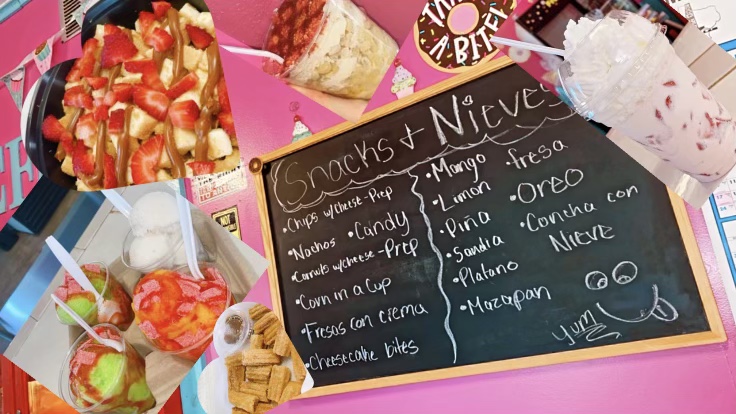 THAT
A BITE!
Snacks + Nieves
•Chips w/cheese-Prep
•Nachos •Candy
•Cornuts w/cheese-Prep
•Corn in a Cup
•Fresas con crema
•Cheesecake bites
•Mango fresa
•Limon •Oreo
•Piña •Concha con
Nieve
•Sandia
•Platano
•Mazapan
yum